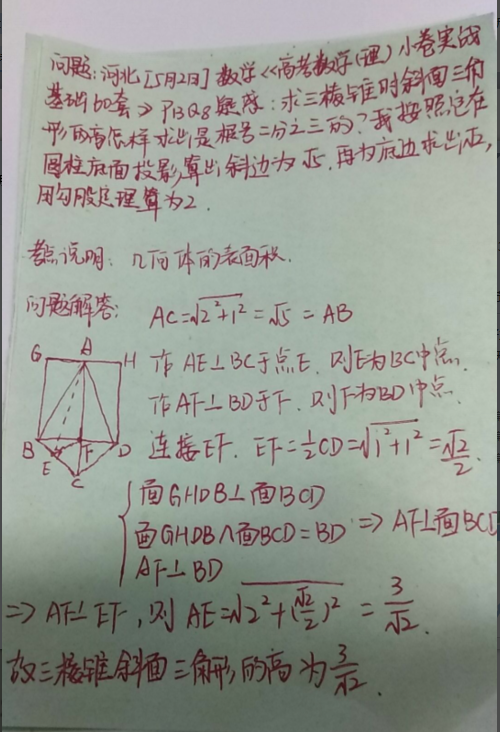 问题:河北[5月2日]数学《高考数学(理)小卷实战
基础60套》P13Q8疑惑:求三棱锥时斜面三角
形的高怎样求出是根号二分之三的?我按照它在
圆柱底面投影,算出斜边为√5.再为底边求出√2,
用勾股定理算为2.
考点说明:几何体的表面积.
问题解答: AC=√2²+1²=√5=AB
作AE⊥BC于点E.则E为BC中点.
作AF⊥BD于F.则F为BD中点.
连接EF. EF=½CD=√1²+1²=√2/2.
面GHDB⊥面BCD
面GHDB∩面BCD=BD ⇒ AF⊥面BCD
AF⊥BD
⇒ AF⊥EF,则 AE=√2²+(√2/2)² = 3/√2.
故三棱锥斜面三角形的高为3/√2.
G A H
B F D
E
C